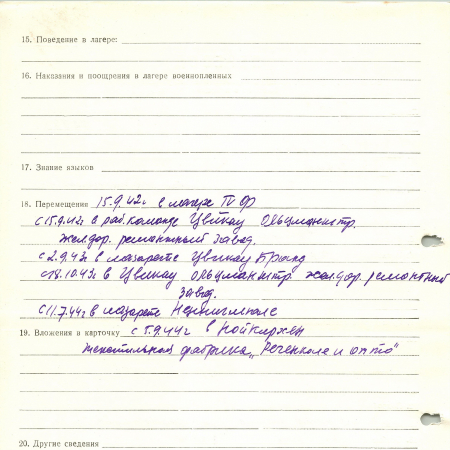 15. Поведение в лагере:
16. Наказания и поощрения в лагере военнопленных
17. Знание языков
18. Перемещения 15.9.42г в лагере IV Ф
с 15.9.42г в раб. команде Цвикау Ольцманштр.
желдор. ремонтный завод.
с 2.9.43г в лазарете Цвикау
с 18.10.43г в Цвикау ольцманштр желдор. ремонтный
завод.
с 11.7.44г в лазарете
19. Вложения в карточку с 5.9.44г в Нойкирхен
текстильная фабрика „ и отто“
20. Другие сведения